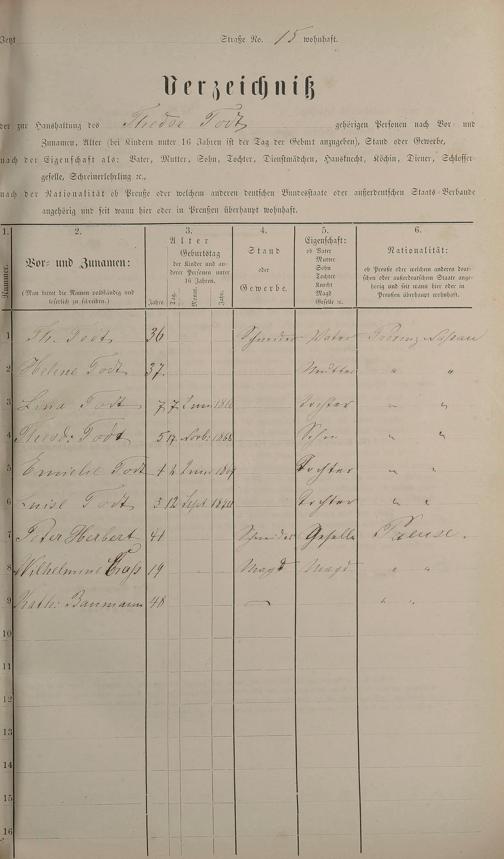 Jetzt Straße No. 15 wohnhaft.
Verzeichniß
der zur Haushaltung des Todt gehörigen Personen nach Vor- und
Zunamen, Alter (bei Kindern unter 16 Jahren ist der Tag der Geburt anzugeben), Stand oder Gewerbe,
nach der Eigenschaft als: Vater, Mutter, Sohn, Tochter, Dienstmädchen, Hausknecht, Köchin, Diener, Schlosser-
geselle, Schreinerlehrling ꝛc.,
nach der Nationalität ob Preuße oder welchem anderen deutschen Bundesstaate oder außerdeutschen Staats-Verbande
angehörig und seit wann hier oder in Preußen überhaupt wohnhaft.
1. 2. 3. 4. 5. 6.
Nummer.
Vor- und Zunamen:
(Man bittet die Namen vollständig und
leserlich zu schreiben.)
Alter
Geburtstag
der Kinder und an-
derer Personen unter
16 Jahren.
Jahre. Tag. Monat. Jahr.
Stand
oder
Gewerbe.
Eigenschaft:
ob Vater
Mutter
Sohn
Tochter
Knecht
Magd
Geselle ꝛc.
Nationalität:
ob Preuße oder welchem anderen deut-
schen oder außerdeutschen Staate ange-
hörig und seit wann hier oder in
Preußen überhaupt wohnhaft.
1 Th. Todt 36 Schneider Vater Provinz Nassau
2 Helene Todt 37. Mutter " "
3 Lina Todt 7 7 Juni Tochter " "
4 Todt 5 17 Novb. 1868 Sohn " "
5 Emilie Todt 4 Juni Tochter " "
6 Luise Todt 3 12 Sept. Tochter " "
7 Peter Herbert 41 Schneider Geselle Preuse.
8 Wilhelmine 19 Magd Magd " "
9 Kath. Baumann 48 — " "
10
11
12
13
14
15
16